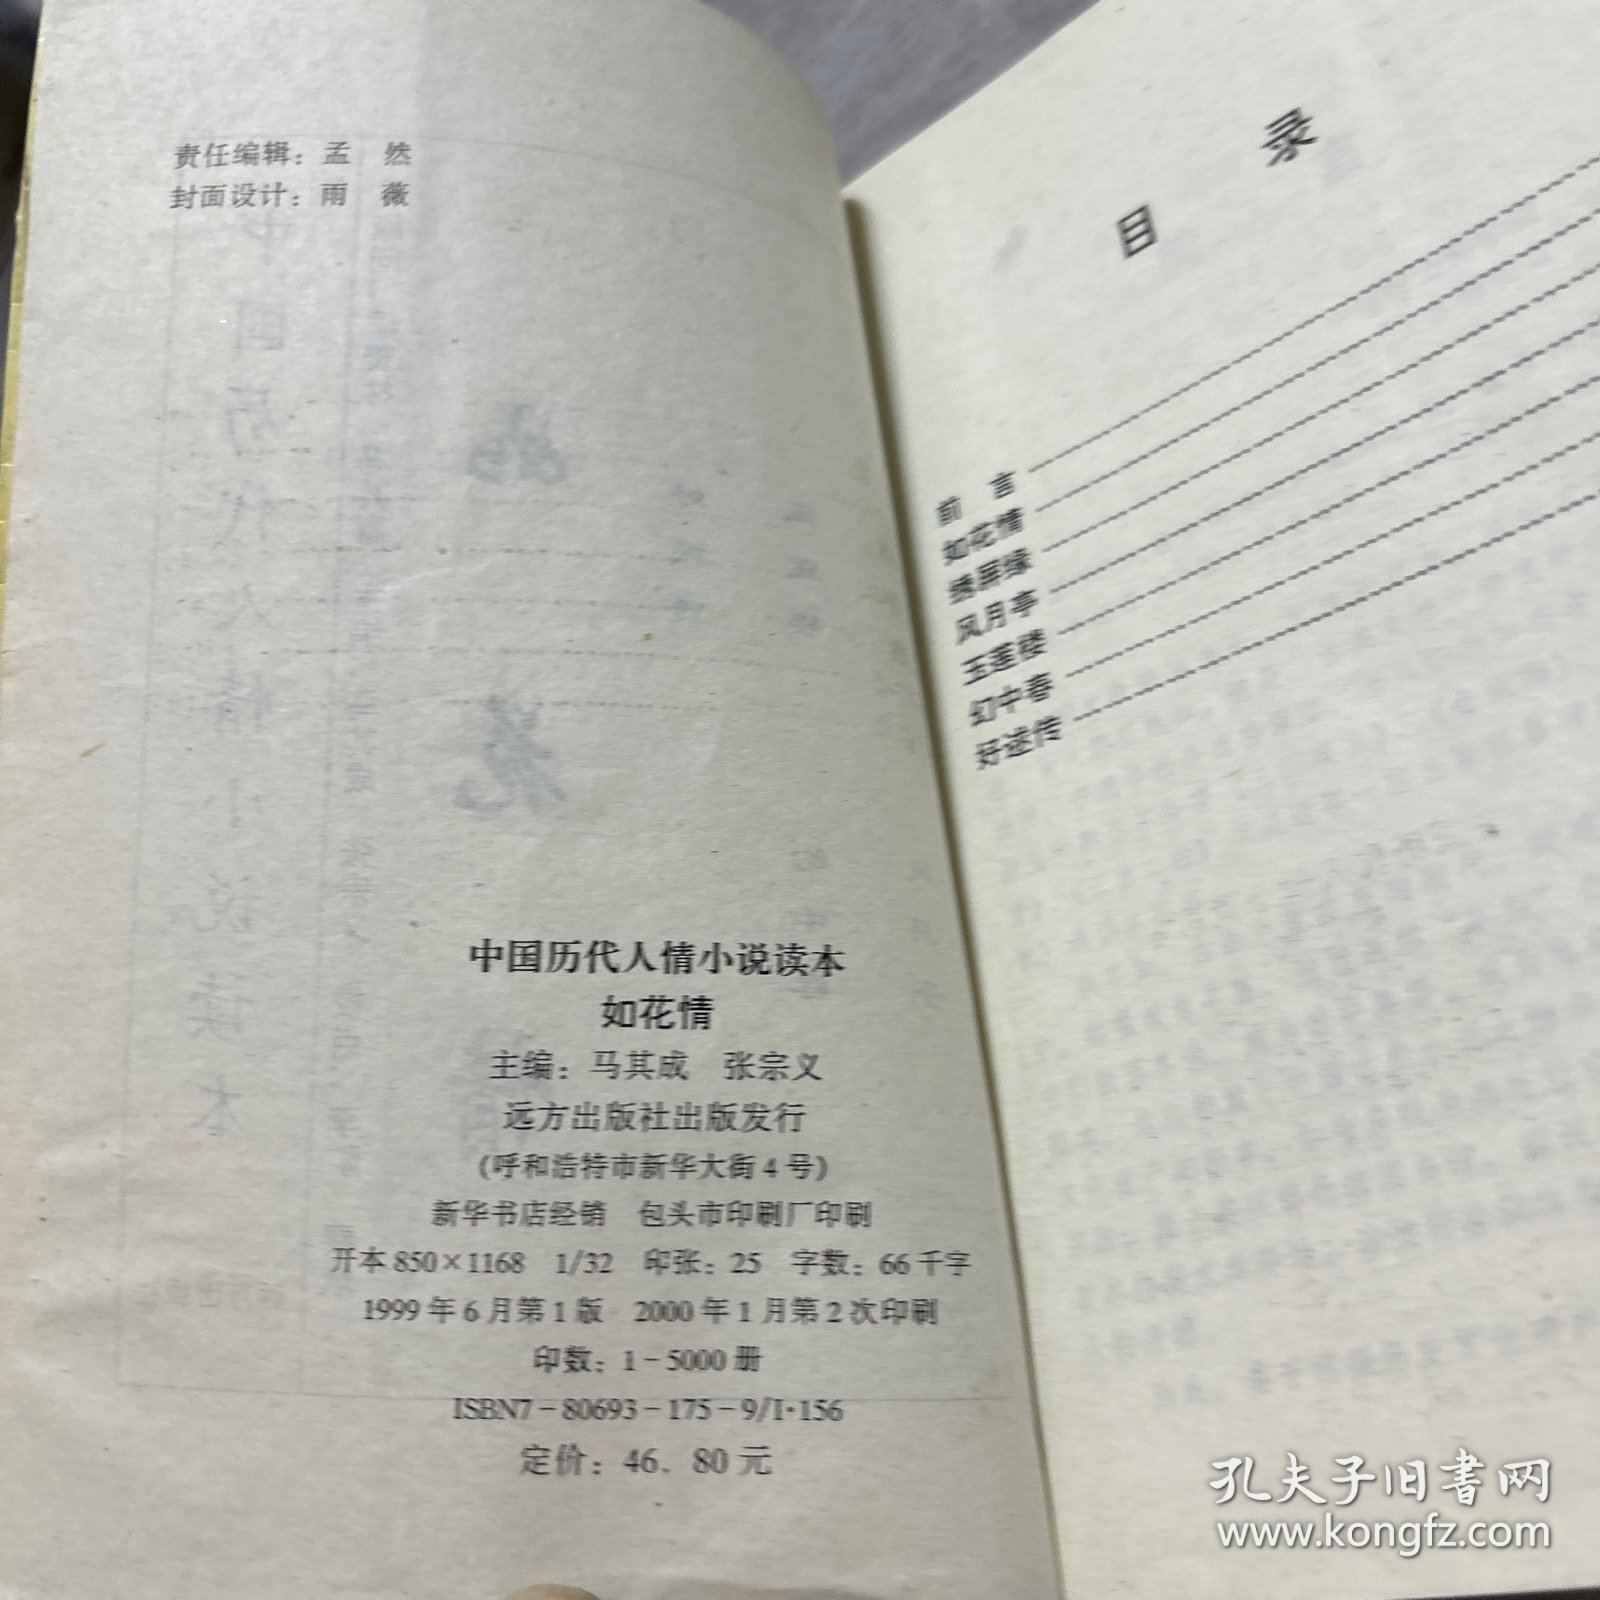 责任编辑：孟　然
封面设计：雨　薇
中国历代人情小说读本
如花情
主编：马其成　张宗义
远方出版社出版发行
（呼和浩特市新华大街4号）
新华书店经销　包头市印刷厂印刷
开本850×1168　1/32　印张：25　字数：66千字
1999年6月第1版　2000年1月第2次印刷
印数：1-5000册
ISBN7-80693-175-9/I·156
定价：46．80元
目　录
前　言
如花情
绣屏缘
风月亭
玉莲楼
幻中春
好逑传
孔夫子旧书网
www.kongfz.com